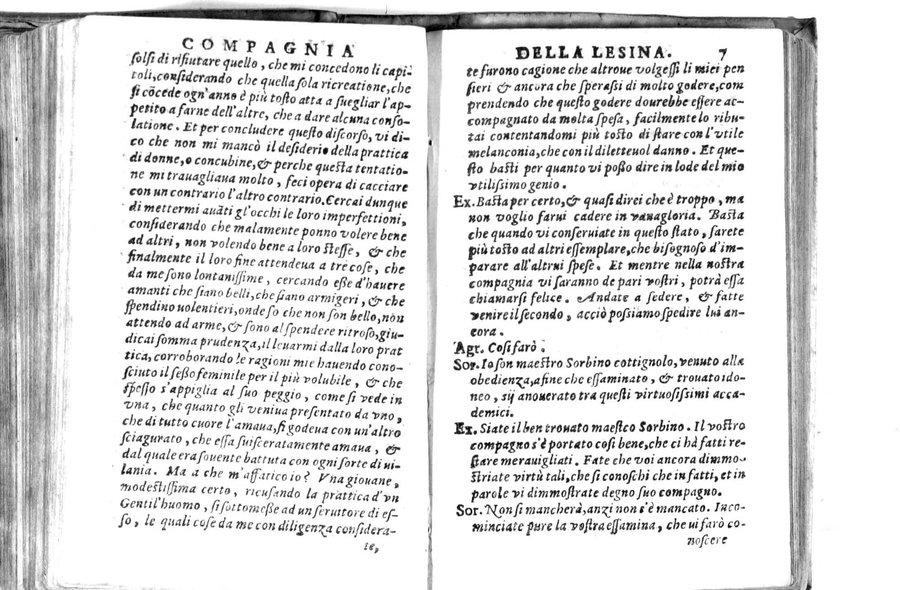 COMPAGNIA
solsi di rifiutare quello, che mi concedono li capi-
toli, considerando che quella sola ricreatione, che
si cõcede ogn'anno è più tosto atta a suegliar l'ap-
petito a farne dell'altre, che a dare alcuna conso-
latione. Et per concludere questo discorso, vi di-
co che non mi mancò il desiderio della prattica
di donne, o concubine, & perche questa tentatio-
ne mi trauagliaua molto, feci opera di cacciare
con un contrario l'altro contrario. Cercai dunque
di mettermi auãti gl'occhi le loro imperfettioni,
considerando che malamente ponno volere bene
ad altri, non volendo bene a loro stesse, & che
finalmente il loro fine attendeua a tre cose, che
da me sono lontanissime, cercando esse d'hauere
amanti che siano belli, che siano armigeri, & che
spendino uolentieri, onde so che non son bello, non
attendo ad arme, & sono al spendere ritroso, giu-
dicai somma prudenza, il leuarmi dalla loro prat
tica, corroborando le ragioni mie hauendo cono-
sciuto il sesso feminile per il più volubile, & che
spesso s'appiglia al suo peggio, come si vede in
vna, che quanto gli veniua presentato da vno,
che di tutto cuore l'amaua, fi godeua con un'altro
sciagurato, che essa suisceratamente amaua, &
dal quale era souente battuta con ogni sorte di ui-
lania. Ma a che m'affatico io? Vna giouane,
modestissima certo, ricusando la prattica d'vn
Gentil'huomo, si sottomesse ad un seruitore di es-
so, le quali cose da me con diligenza considera-
te,
DELLA LESINA. 7
te furono cagione che altroue volgessi li miei pen
sieri & ancora che sperassi di molto godere, com
prendendo che questo godere dourebbe essere ac-
compagnato da molta spesa, facilmente lo ribu-
tai contentandomi più tosto di stare con l'vtile
melanconia, che con il diletteuol danno. Et que-
sto basti per quanto vi posso dire in lode del mio
vtilissimo genio.
Ex. Basta per certo, & quasi direi che è troppo, ma
non voglio farui cadere in vanagloria. Basta
che quando vi conseruiate in questo stato, sarete
più tosto ad altri essemplare, che bisognoso d'im-
parare all'altrui spese. Et mentre nella nostra
compagnia vi saranno de pari vostri, potrà essa
chiamarsi felice. Andate a sedere, & fatte
venire il secondo, acciò possiamo spedire lui an-
cora.
Agr. Cosi farò.
Sor. Io son maestro Sorbino cottignolo, venuto alla
obedienza, afine che essaminato, & trouato ido-
neo, sij anouerato tra questi virtuosissimi acca-
demici.
Ex. Siate il ben trouato maestco Sorbino. Il vostro
compagno s'è portato cosi bene, che ci hà fatti re-
stare merauigliati. Fate che voi ancora dimmo-
striate virtù tali, che si conoschi che in fatti, et in
parole vi dimmostrate degno suo compagno.
Sor. Non si mancherà, anzi non s'è mancato. Inco-
minciate pure la vostra essamina, che ui farò co-
noscere